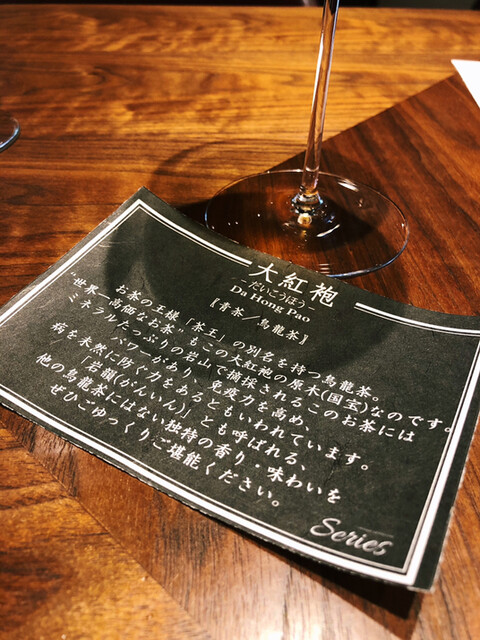 大紅袍
―だいこうほう―
Da Hong Pao
〖青茶／烏龍茶〗
お茶の王様「茶王」の別名を持つ烏龍茶。
“世界一高価なお茶”もこの大紅袍の原木(国宝)なのです。
ミネラルたっぷりの岩山で摘採されるこのお茶には
パワーがあり、免疫力を高め、
病を未然に防ぐ力をあるともいわれています。
「岩韻(がんいん)」とも呼ばれる、
他の烏龍茶にはない独特の香り・味わいを
ぜひごゆっくりご堪能ください。
Series